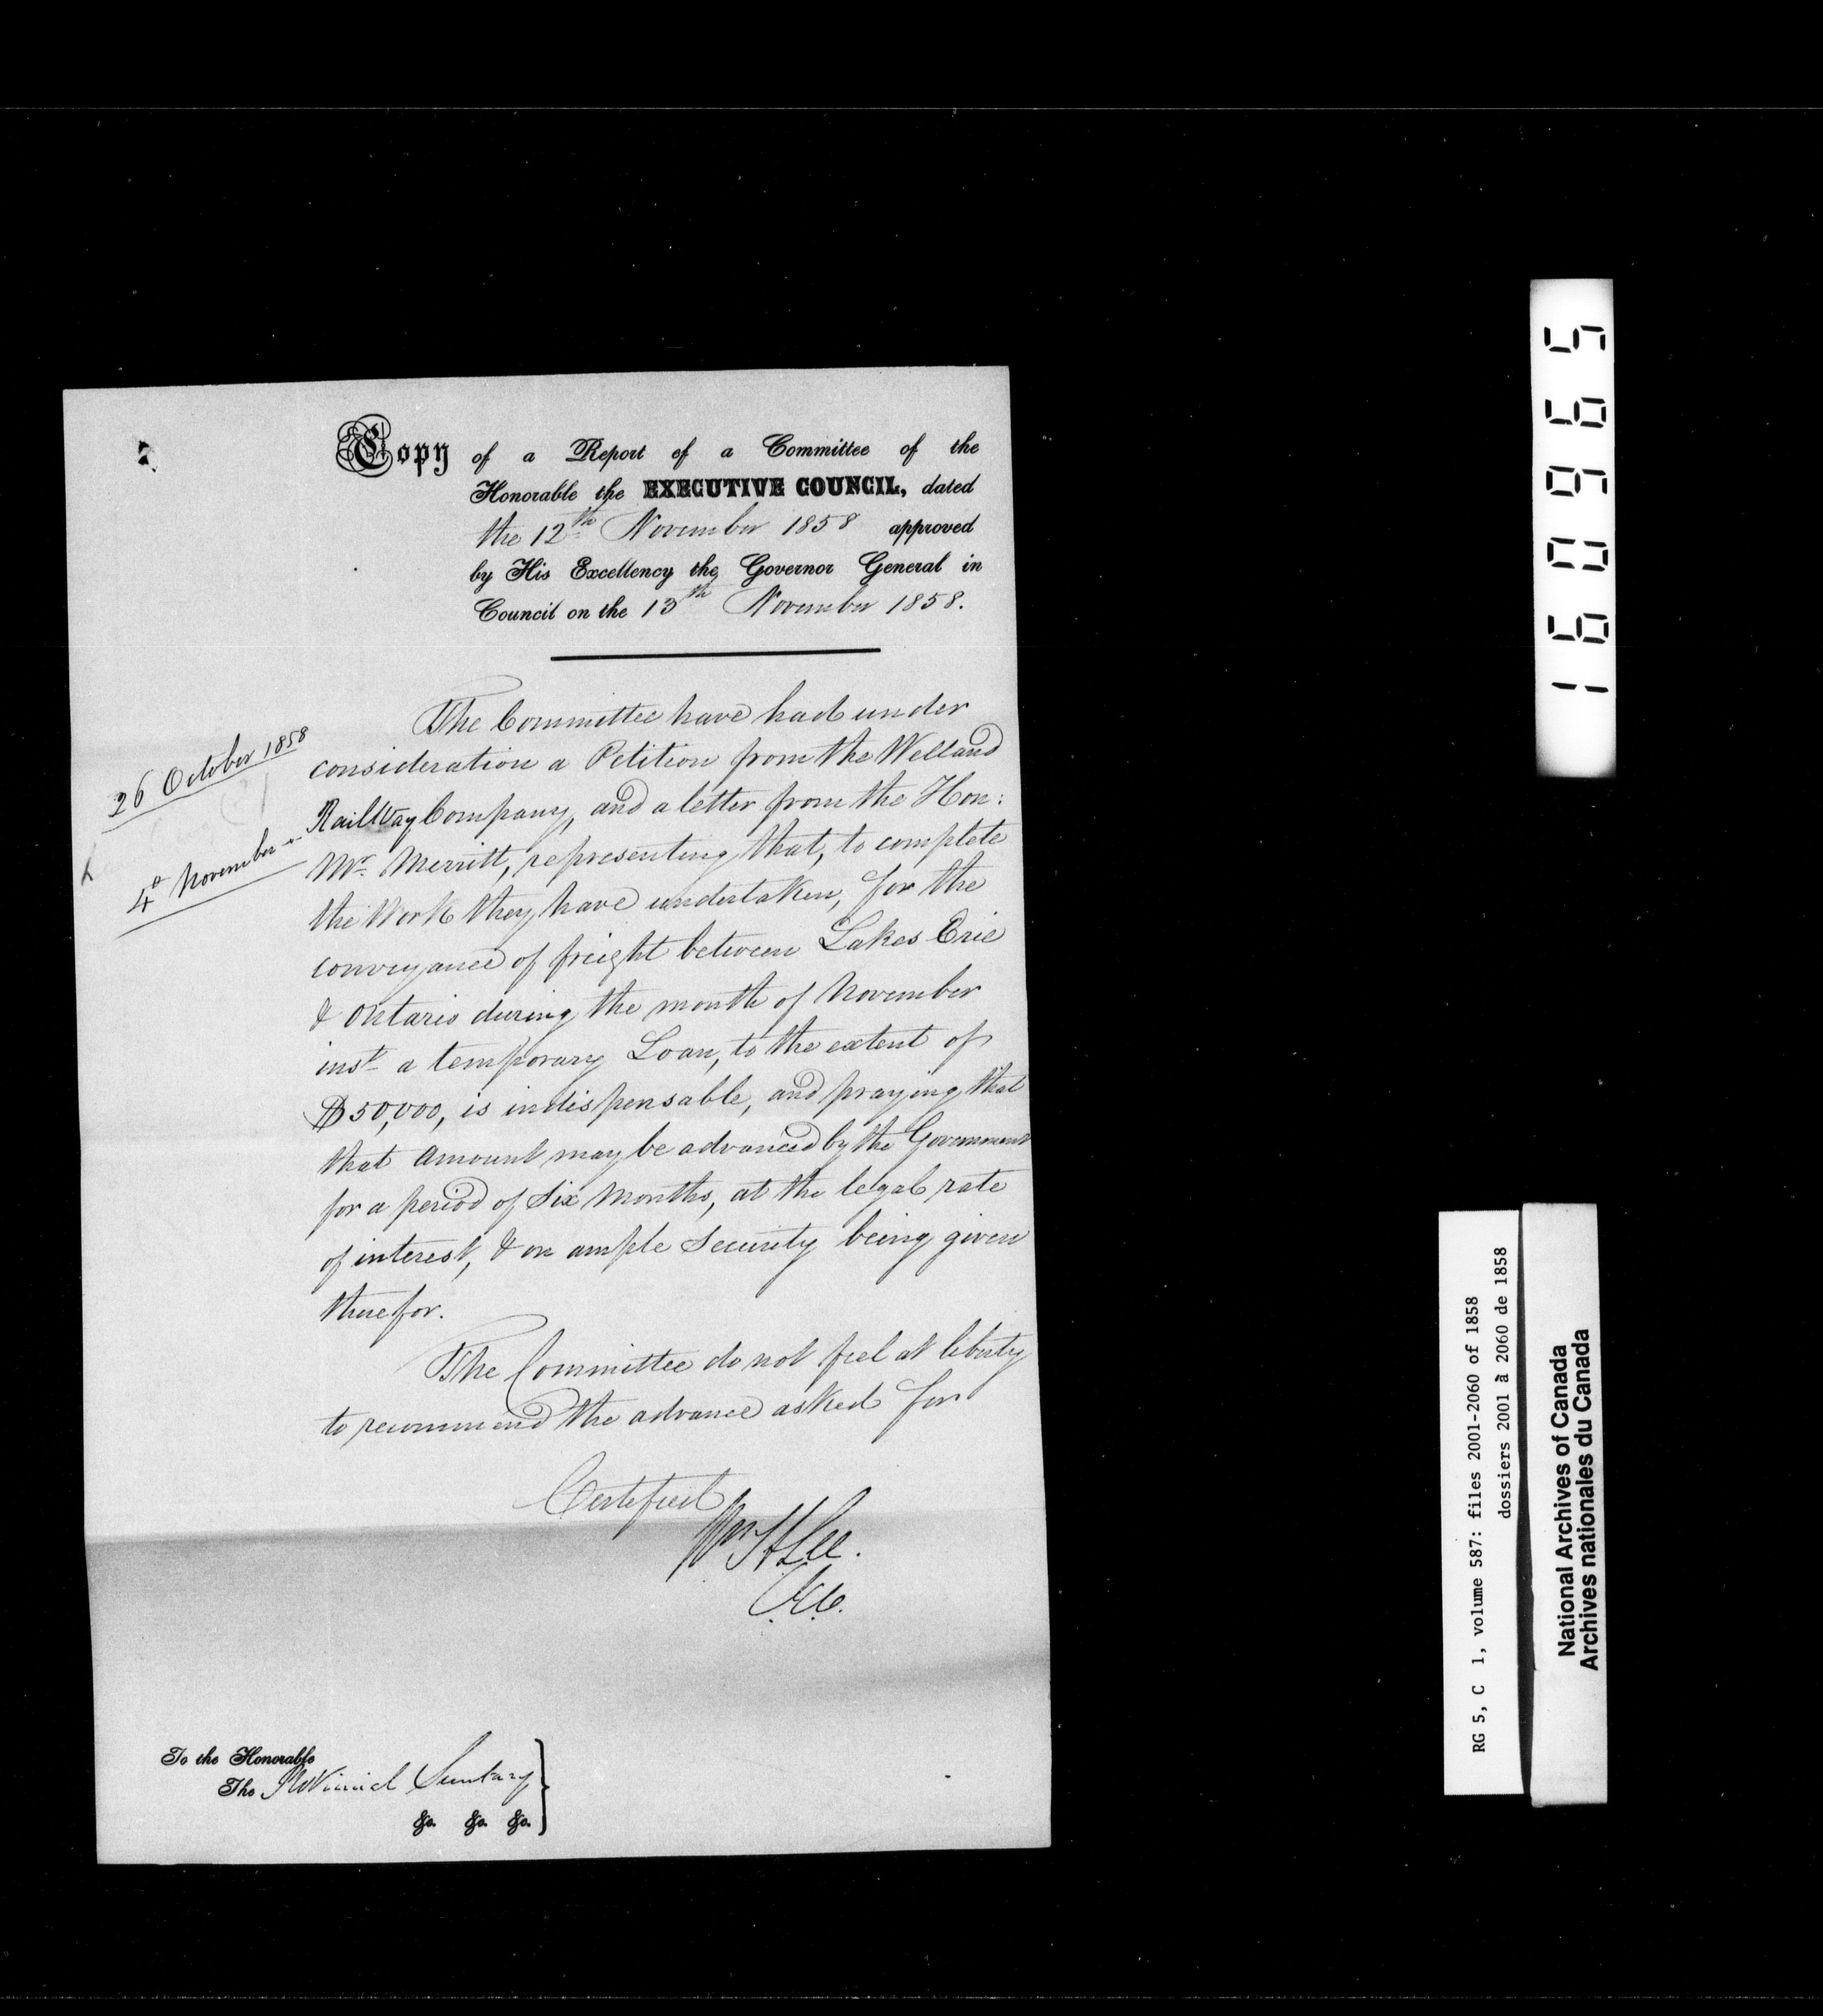 Copy of a Report of a Committee of the
Honorable the EXECUTIVE COUNCIL, dated
the 12th November 1858 approved
by His Excellency the Governor General in
Council on the 13th November 1858.
26 October 1858
4th November "
The Committee have had under
consideration a Petition from the Welland
Railway Company, and a letter from the Hon:
Mr. Merritt, representing that, to complete
the Work they have undertaken, for the
conveyance of freight between Lakes Erie
& Ontario during the month of November
inst a temporary Loan, to the extent of
$50,000, is indispensable, and praying that
that amount may be advanced by the Government
for a period of Six Months, at the legal rate
of interest, & on ample Security being given
therefor.
The Committee do not feel at liberty
to recommend the advance asked for
Certified
Wm H Lee.
C.E.C.
To the Honorable
The Provincial Secretary
&c. &c. &c.
160965
RG 5, C 1, volume 587: files 2001-2060 of 1858
dossiers 2001 à 2060 de 1858
National Archives of Canada
Archives nationales du Canada